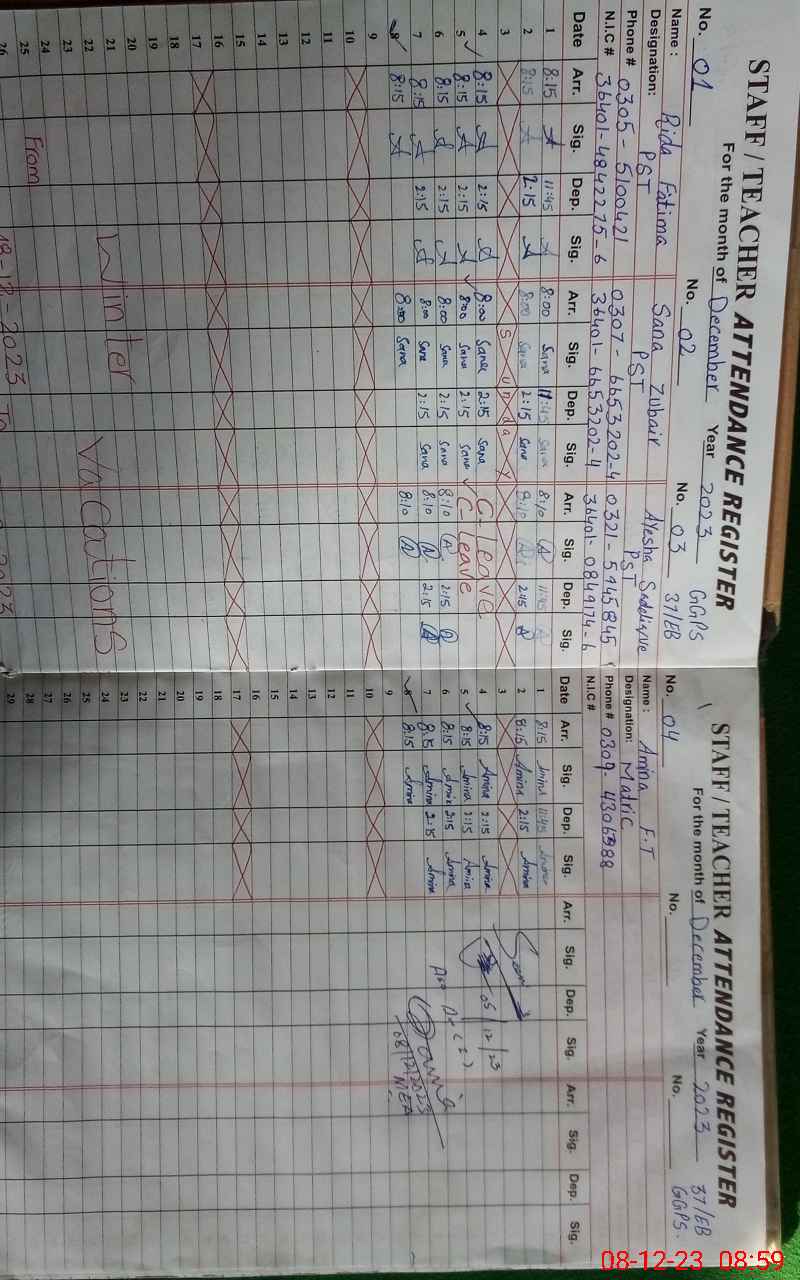 STAFF / TEACHER ATTENDANCE REGISTER
For the month of December Year 2023
GGPS
37/EB
No. 01 No. 02 No. 03
Name: Rida Fatima Sana Zubair Ayesha Sadeliqve
Designation: PST PST PST
Phone # 0305-5100421 0307-6653202-4 0321-5945845
N.I.C # 36401-4842275-6 36401-6653202-4 36401-0849174-6
Date Arr. Sig. Dep. Sig. Arr. Sig. Dep. Sig. Arr. Sig. Dep. Sig.
1 8:15 11:45 8:00 Sana 11:45 Sana 8:10 A 11:45
2 8:15 2:15 8:00 Sana 2:15 Sana 8:10 2:15
3 Sunday
4 8:15 2:15 8:00 Sana 2:15 Sana C-Leave
5 8:15 2:15 8:00 Sana 2:15 Sana C-Leave
6 8:15 2:15 8:00 Sana 2:15 Sana 8:10 A 2:15 A
7 8:15 2:15 8:00 Sana 2:15 Sana 8:10 A 2:15 A
8 8:15 8:00 Sana 8:10 A
9
10
11
12
13
14
15
16
17
18
19
20
21
22
23
24
25
26
Winter Vacations
From 18-12-2023 To
STAFF / TEACHER ATTENDANCE REGISTER
For the month of December Year 2023
37/EB
GGPS.
No. 04 No. No.
Name: Amina F.T
Designation: Matric
Phone # 0309-4306988
N.I.C #
Date Arr. Sig. Dep. Sig. Arr. Sig. Dep. Sig. Arr. Sig. Dep. Sig.
1 8:15 Amina 11:45 Amina
2 8:15 Amina 2:15 Amina
3
4 8:15 Amina 2:15 Amina
5 8:15 Amina 2:15 Amina
6 8:15 Amina 2:15 Amina
7 8:15 Amina 2:15 Amina
8 8:15 Amina
9
10
11
12
13
14
15
16
17
18
19
20
21
22
23
24
25
26
27
28
29
05/12/23
08/12/2023
MEA
08-12-23 08:59